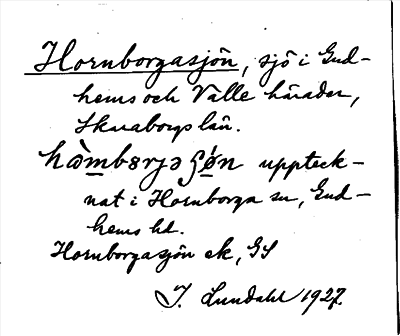 Hornborgasjön, sjö i Gud-
hems och Valle härader,
Skaraborgs län.
hòmbɞrjɘʂø̀n uppteck-
nat i Hornborga sn, Gud-
hems hd.
Hornborgasjön ek, GS
I. Lundahl 1927.